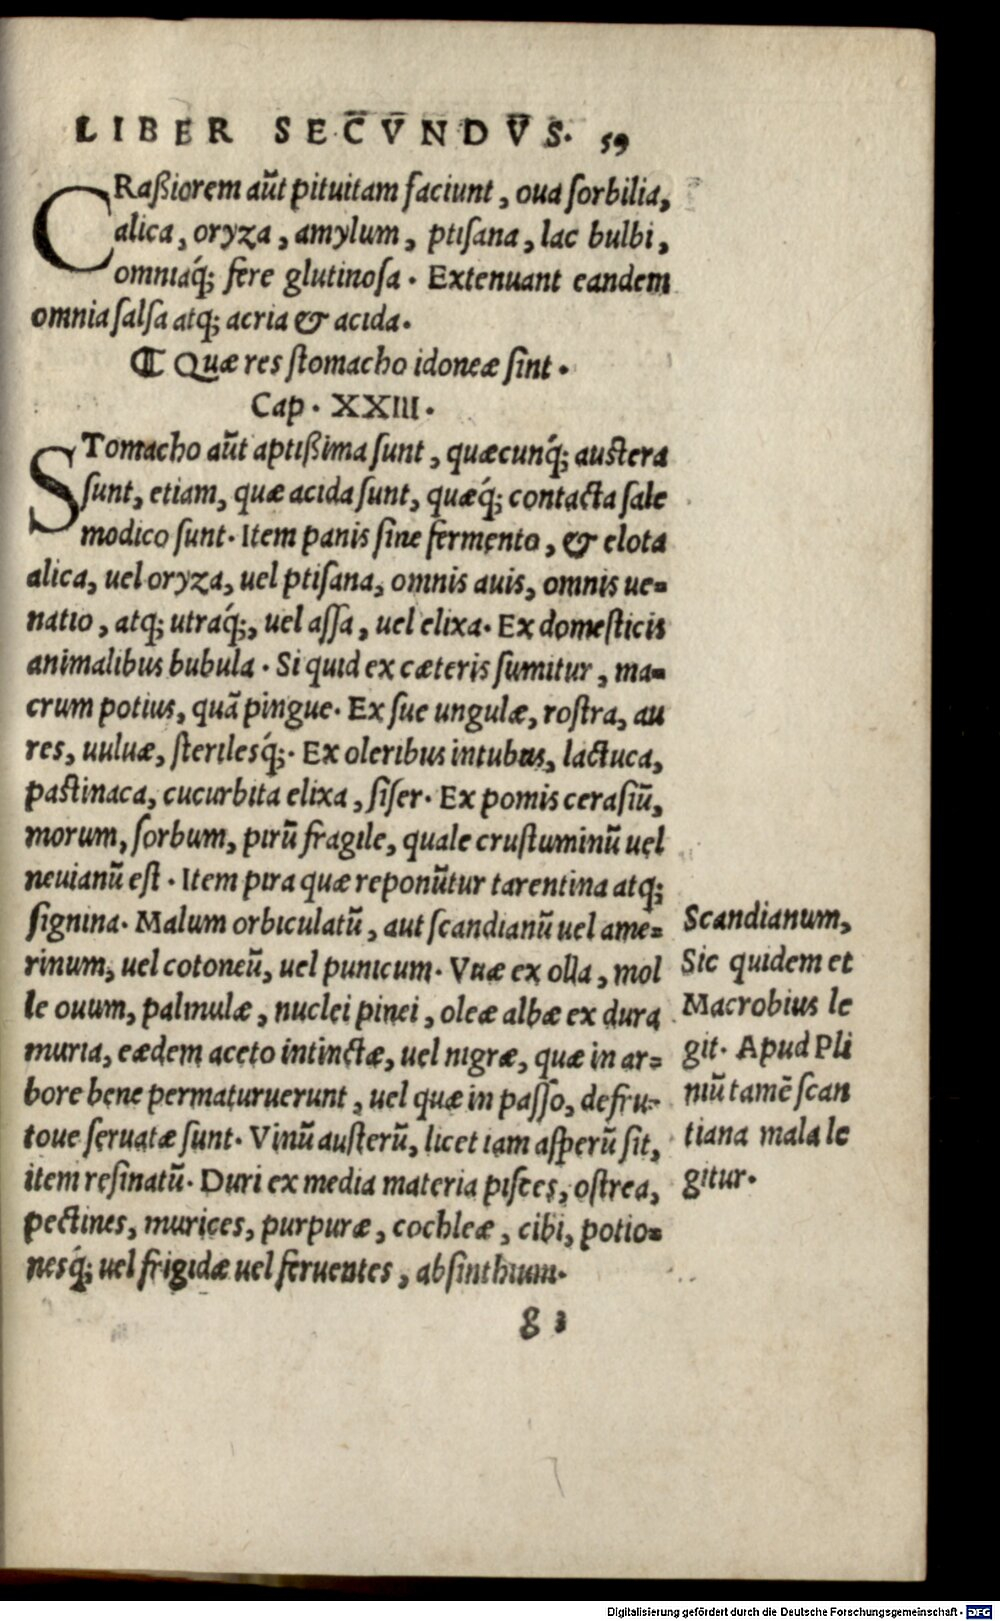 LIBER SECVNDVS. 59
CRaßiorem aūt pituitam faciunt, oua ſorbilia,
alica, oryza, amylum, ptiſana, lac bulbi,
omniaq́; fere glutinoſa. Extenuant eandem
omnia ſalſa atq; acria & acida.
¶ Quæ res ſtomacho idoneæ ſint.
Cap. XXIII.
STomacho aūt aptißima ſunt, quæcunq́; auſtera
ſunt, etiam, quæ acida ſunt, quæq́; contacta ſale
modico ſunt. Item panis ſine fermento, & elota
alica, uel oryza, uel ptiſana, omnis auis, omnis ue-
natio, atq; utraq́;, uel aſſa, uel elixa. Ex domeſticis
animalibus bubula. Si quid ex cæteris ſumitur, ma-
crum potius, quā pingue. Ex ſue ungulæ, roſtra, au
res, uuluæ, ſterilesq́;. Ex oleribus intubus, lactuca,
paſtinaca, cucurbita elixa, ſiſer. Ex pomis ceraſiū,
morum, ſorbum, pirū fragile, quale cruſtuminū uel
neuianū eſt. Item pira quæ reponūtur tarentina atq;
ſignina. Malum orbiculatū, aut ſcandianū uel ame-
rinum, uel cotoneū, uel punicum. Vuæ ex olla, mol
le ouum, palmulæ, nuclei pinei, oleæ albæ ex dura
muria, eædem aceto intinctæ, uel nigræ, quæ in ar-
bore bene permaturuerunt, uel quæ in paſſo, defru-
toue ſeruatæ ſunt. Vinū auſterū, licet iam aſperū ſit,
item reſinatū. Duri ex media materia piſces, oſtrea,
pectines, murices, purpuræ, cochleæ, cibi, potio-
nesq́; uel frigidæ uel feruentes, abſinthium.
g 3
Scandianum,
Sic quidem et
Macrobius le
git. Apud Pli
niū tamē ſcan
tiana mala le
gitur.
Digitalisierung gefördert durch die Deutsche Forschungsgemeinschaft - DFG